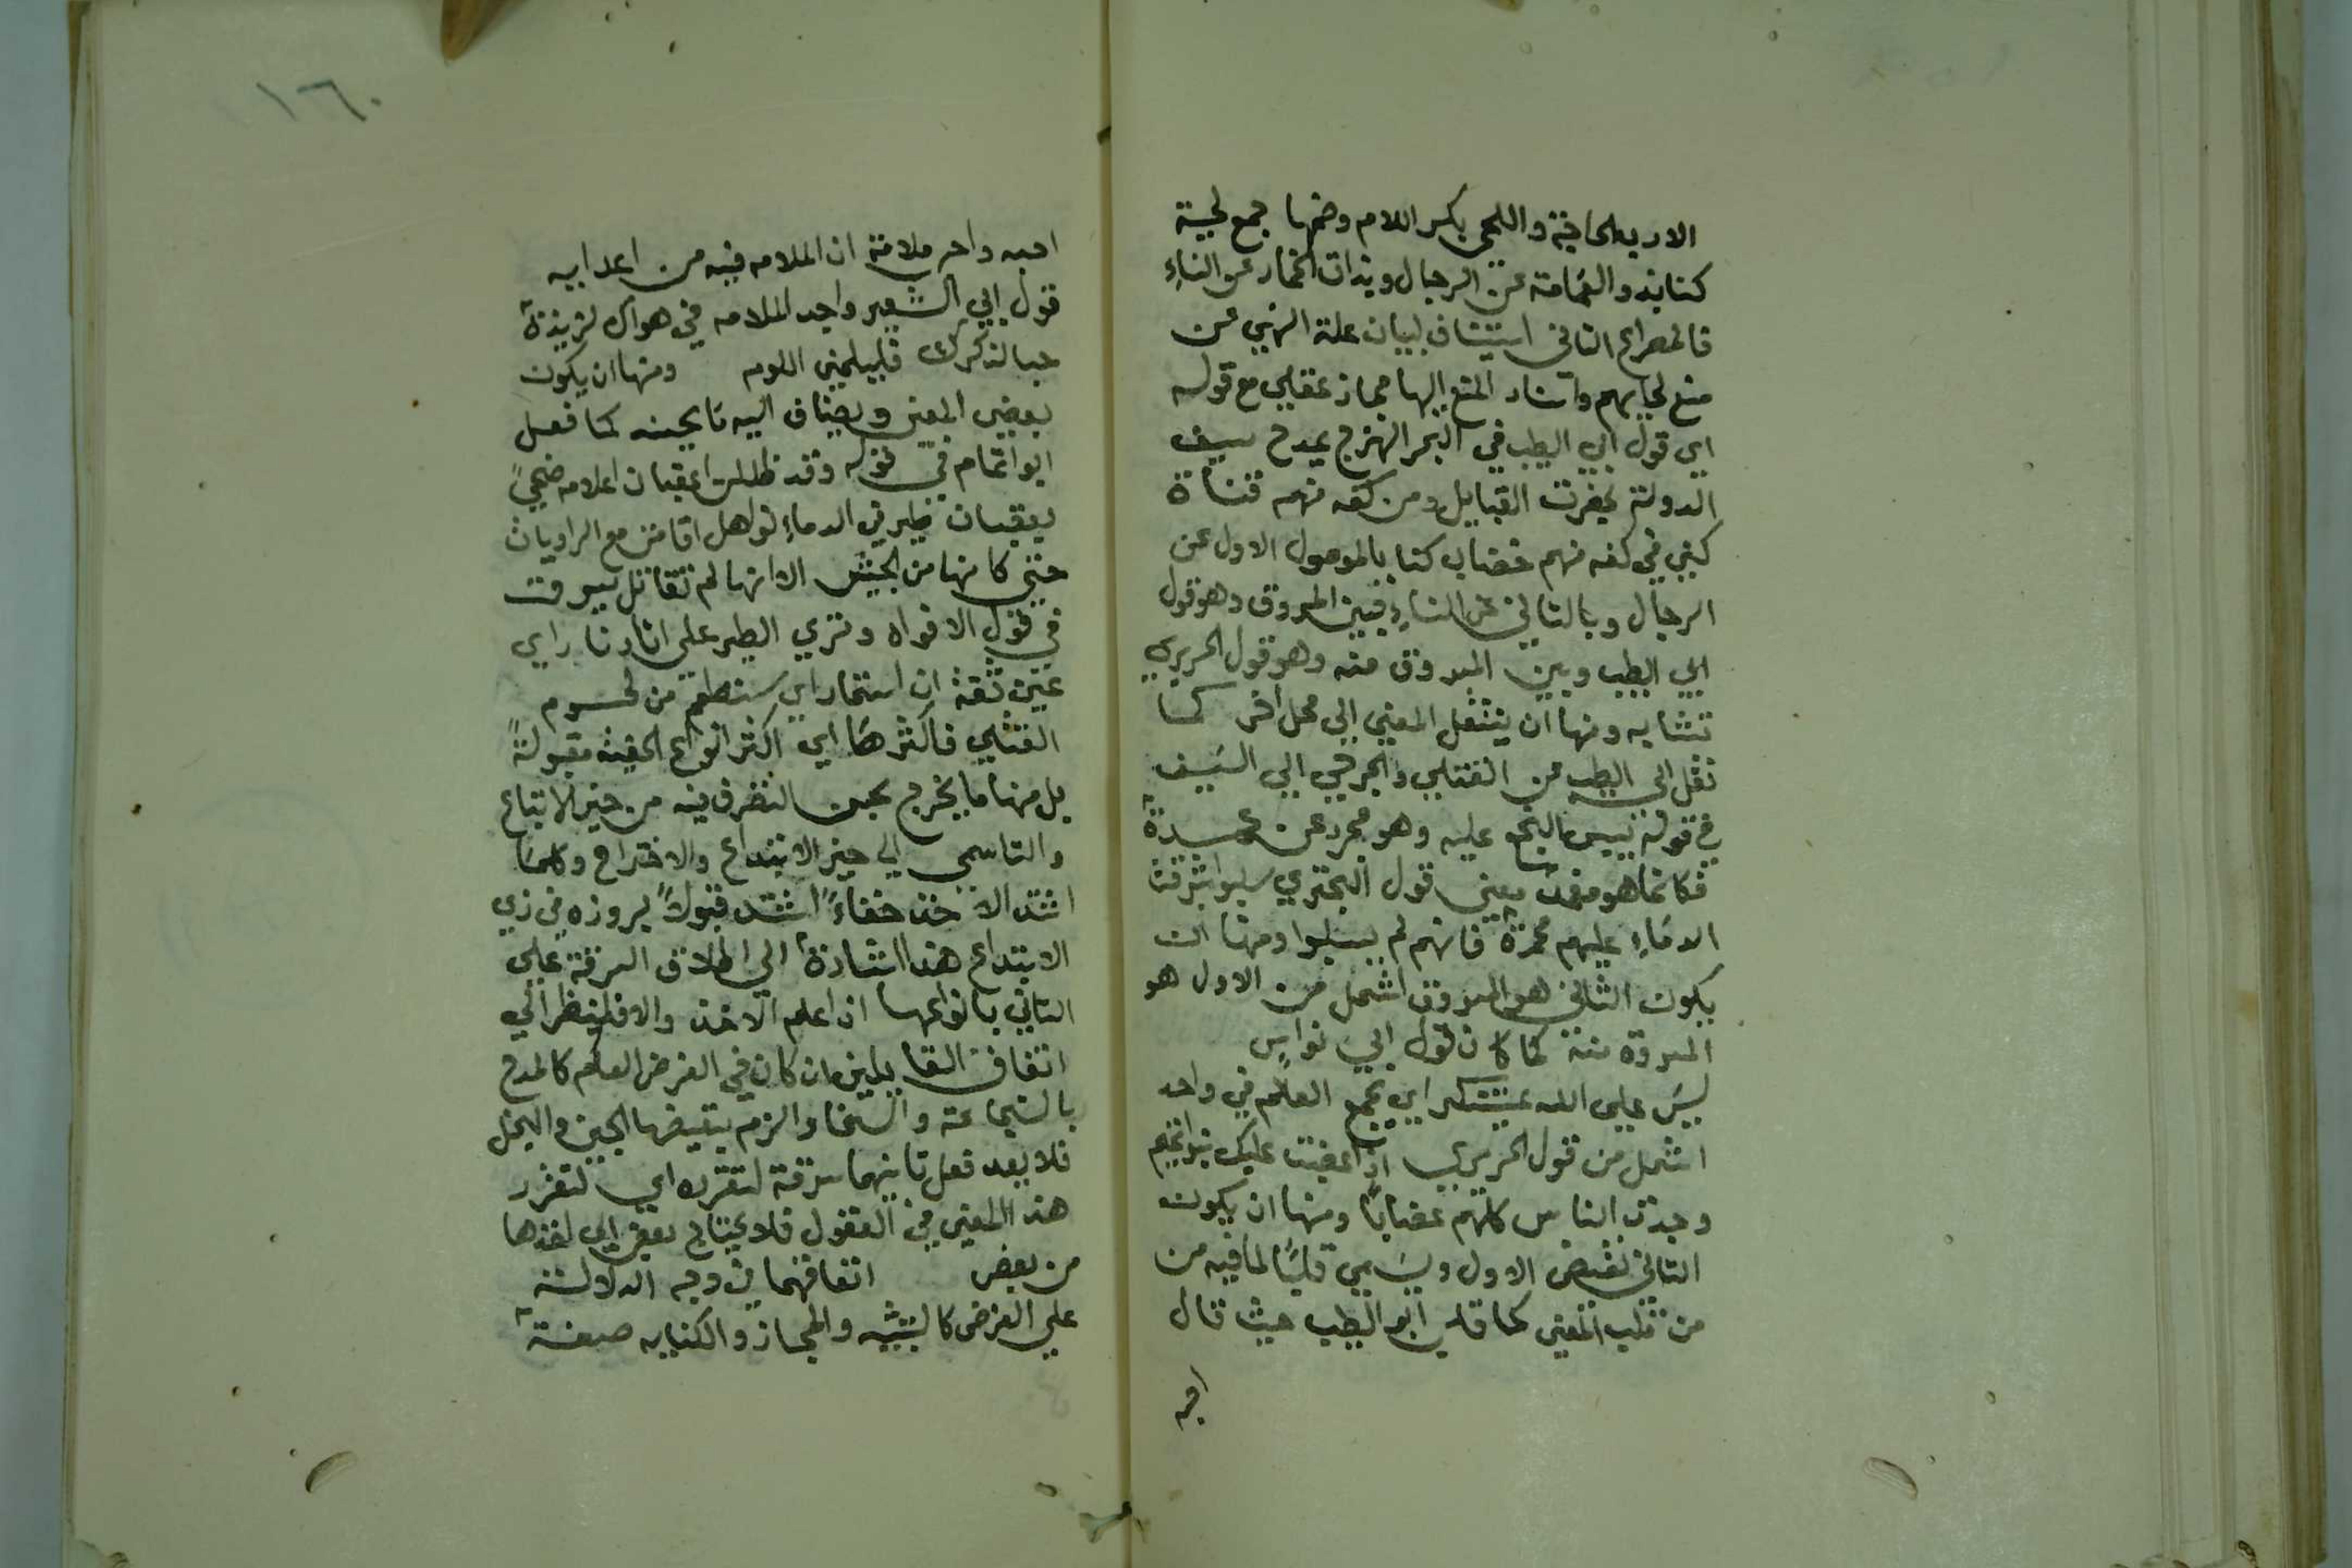 الاربه الحاجة واللحى بكسر اللام وضمها جمع لحية
كنابذو العمامة عن الرجال وبذات الخمار عن النساءِ
فالمصراع الثانى استيناف لبيان علة النهي عن
منع لحايهم واسناد المنع اليها مجاز عقلي مع قوله
اي قول ابي الطيب في البحر الهزج يمدح سيف
الدولة بحفرت القبايل ومن كفه منهم قناة
كيني في كفه منهم خضاب كنا بالموصول الاول عن
الرجال وبالثاني عن النساءِ فبين المسروق وهو قول
ابي الطيب وبين المسروق منه وهو قول الحريري
تشابه ومنها ان ينتقل المعني الي محل اخر كما
نقل ابي الطيب من القتلي والجرحي الي السَيف
في قوله يبس النجع عليه وهو مجرد عن غمده
فكانما هو مغمد معني قول البحتري سلبوا اشرقت
الدماءِ عليهم محمرة فانهم لم يسلبوا ومنها ان
يكون الثاني هو المسروق اشمل من الاول هو
المسروق منه كما كان قول ابي نواسٍ
ليسَ علي الله بمستنكر اي يجمع العالم في واحد
اشمل من قول الحريري اذا غضبت عليك بنو اتميم
وجدت الناس كلهم غضابًا ومنها ان يكون
الثاني نقيض الاول ويسَمي قلبًا لما فيه من
من قلب المعني كما قلب ابو الطيب حيث قال
احبه
١٦٠
احبه واحب ملامة ان الملامه فيه من اعدايه
قول ابي الشيص واجد الملامه في هواك لزيذة
حبا لذكرك فليلمني اللوم ومنها ان يكون
بعض المعني ويضاف اليه ما يحسنه كما فعل
ابوا تمام في قوله وقد ظللت عقبان اعلامه ضحيً
بعقبان طير في الدماءِ نواهل اقامن مع الرايات
حتي كانها من الجيش الا انها لم تقاتل سرقت
في قول الافواه وتري الطير علي اثارنا راي
عين ثقة ان استمار اي ستطعم من لحوم
القتلي فاكثرهَا اي اكثر انواع الخفية مقبولةً
بل منها ما يخرج بحسن التصرف فيه من حيز الاتباع
والتاسي الي حيز الابتداع والاختراع وكلما
اشتد الاخذ خفاءً اشتد قبولاً لبروزه في زي
الابتداع هذا اشارة الي اطلاق السرقة علي
الثاني بانواعها ان اعلم الاخذ والا فلينظر الي
اتفاق القايلين ان كان في الغرض العام كالمدح
بالشجاعة والسخا والزم بنقيضها الجبن والبخل
فلا يعد فعل ثانيهما سرقة لتقرره اي لتقرر
هذا المعني في العقول فلا يحتاج بعض الي اخذها
من بعض اتفاقهما في وجه الدلالة
علي الغرض كالتشبيه والمجاز والكنايه صيغة